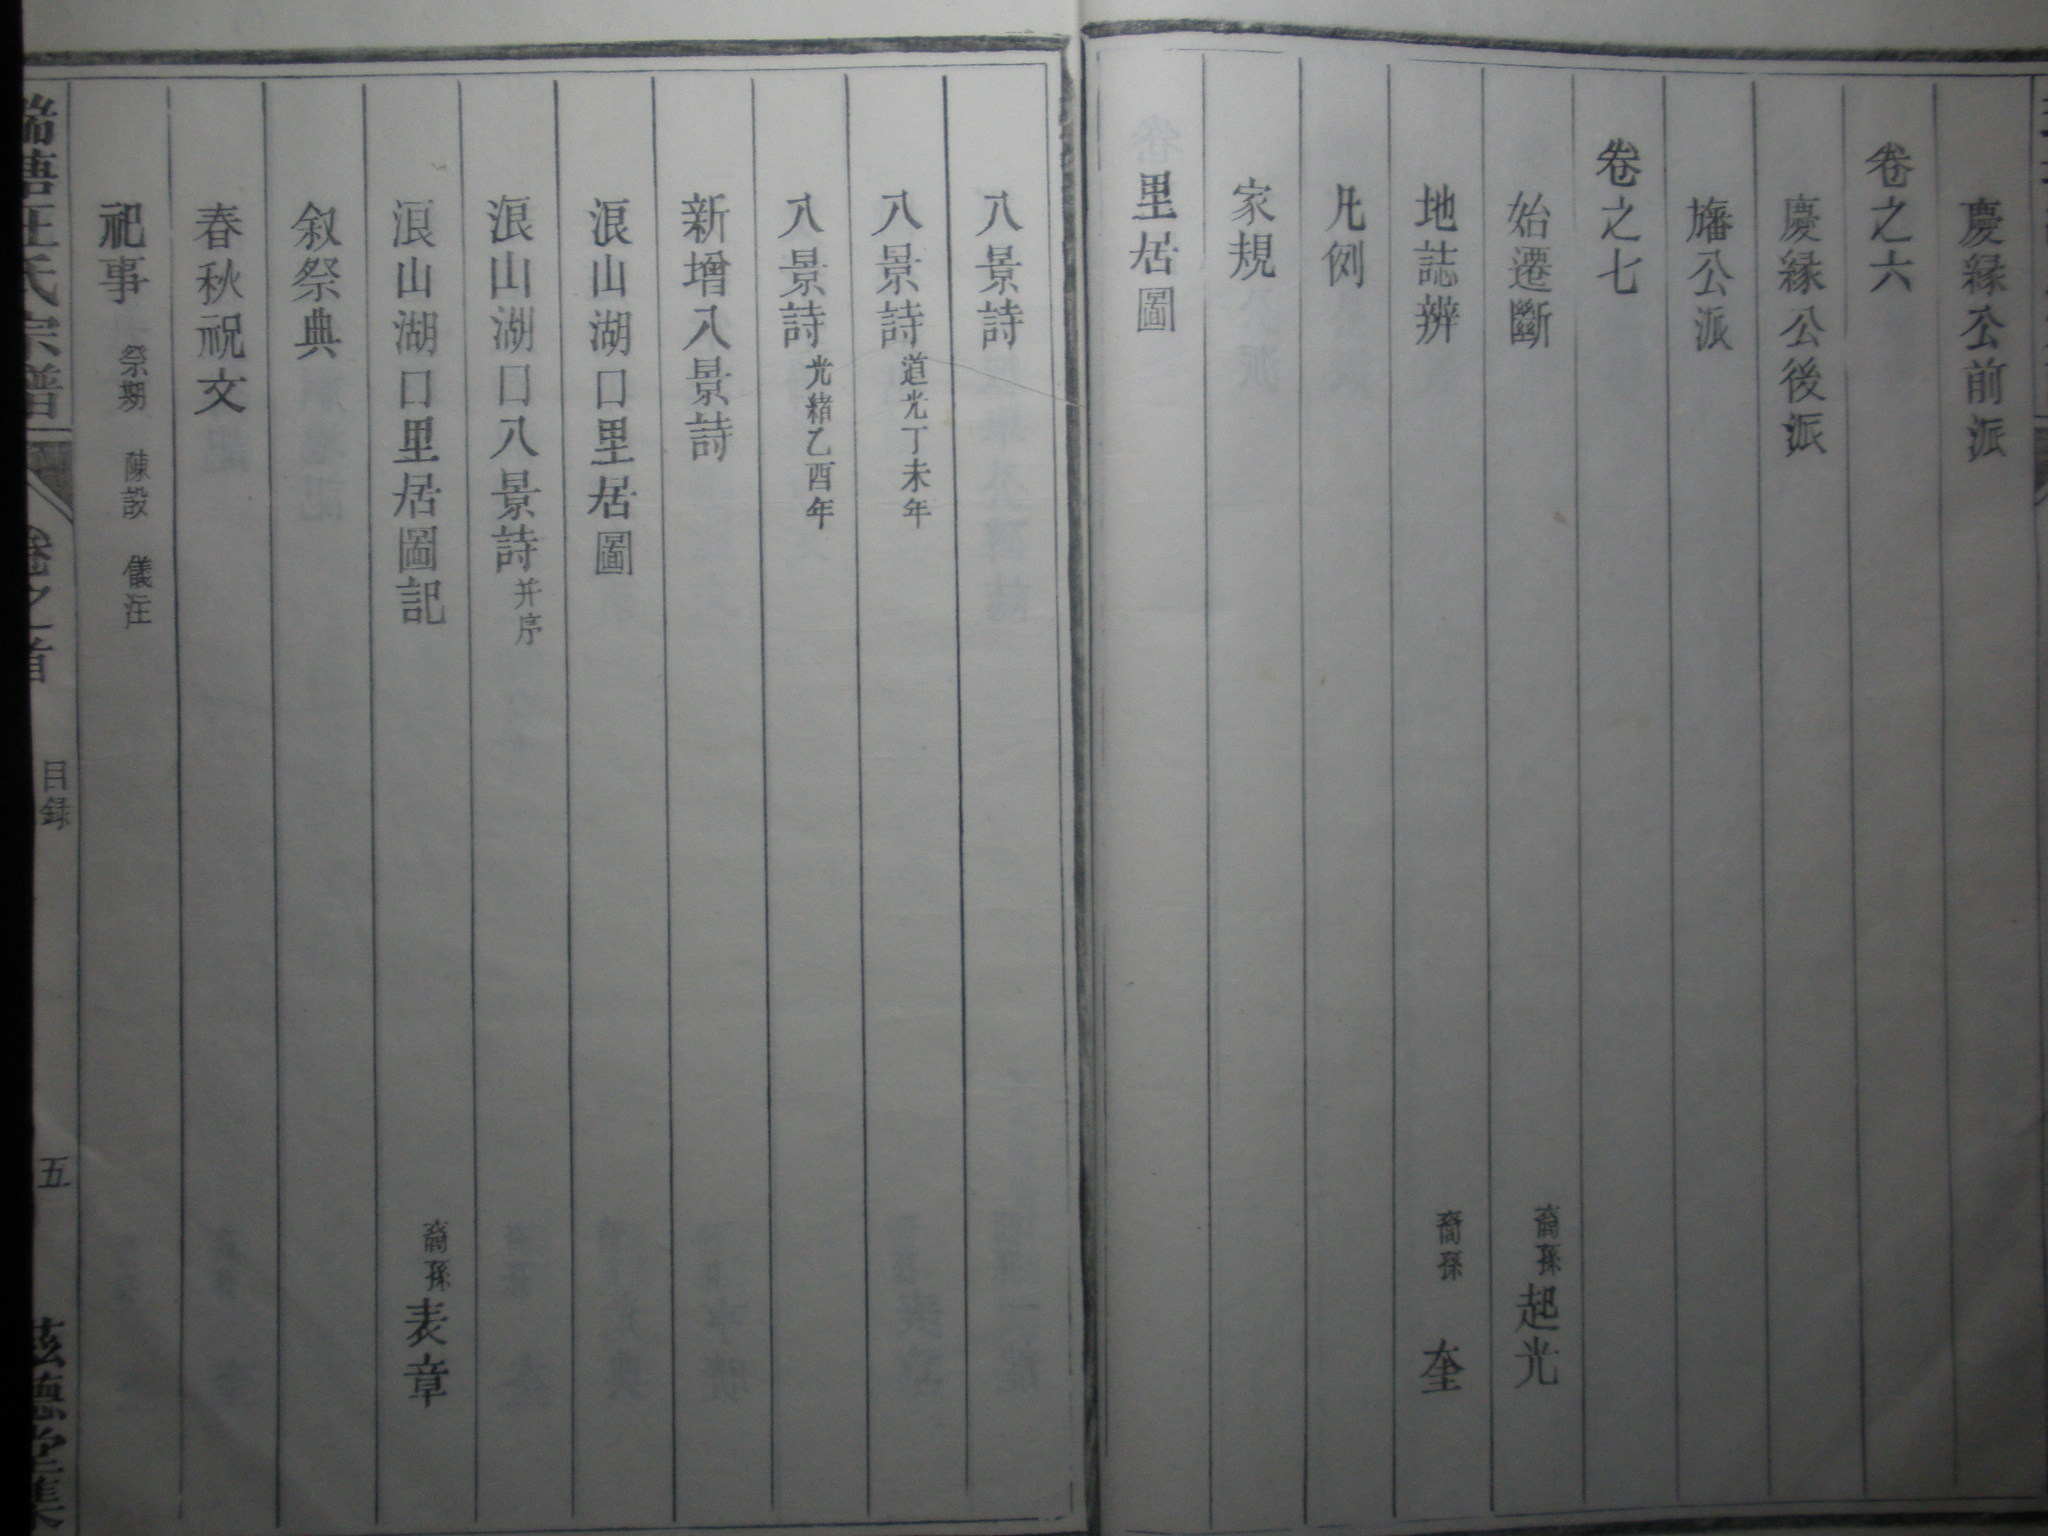 慶緣公前派
卷之六
慶緣公後派
旛公派
卷之七
始遷斷 裔孫起光
地誌辨 裔孫 奎
凡例
家規
里居圖
八景詩
八景詩 道光丁未年
八景詩 光緒乙酉年
新增八景詩
浪山湖口里居圖
浪山湖口八景詩 并序
浪山湖口里居圖記 裔孫表章
叙祭典
春秋祝文
祀事 祭期 陳設 儀注
氏宗譜 卷之首 目録 五 德堂集